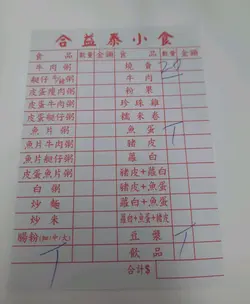 合益泰小食
食品 數量 金額 食品 數量 金額
牛肉粥 燒賣
牛肉
皮蛋瘦肉粥 粉果
皮蛋牛肉粥 珍珠雞
皮蛋艇仔粥 糯米卷
魚片粥 魚蛋 T
魚片牛肉粥 豬皮
魚片艇仔粥 蘿白
皮蛋魚片粥 豬皮+蘿白
白粥 豬皮+魚蛋
炒麵 蘿白+魚蛋
炒米 蘿白+魚蛋+豬皮
腸粉(細/中/大) T 豆漿 T
飲品
合計$